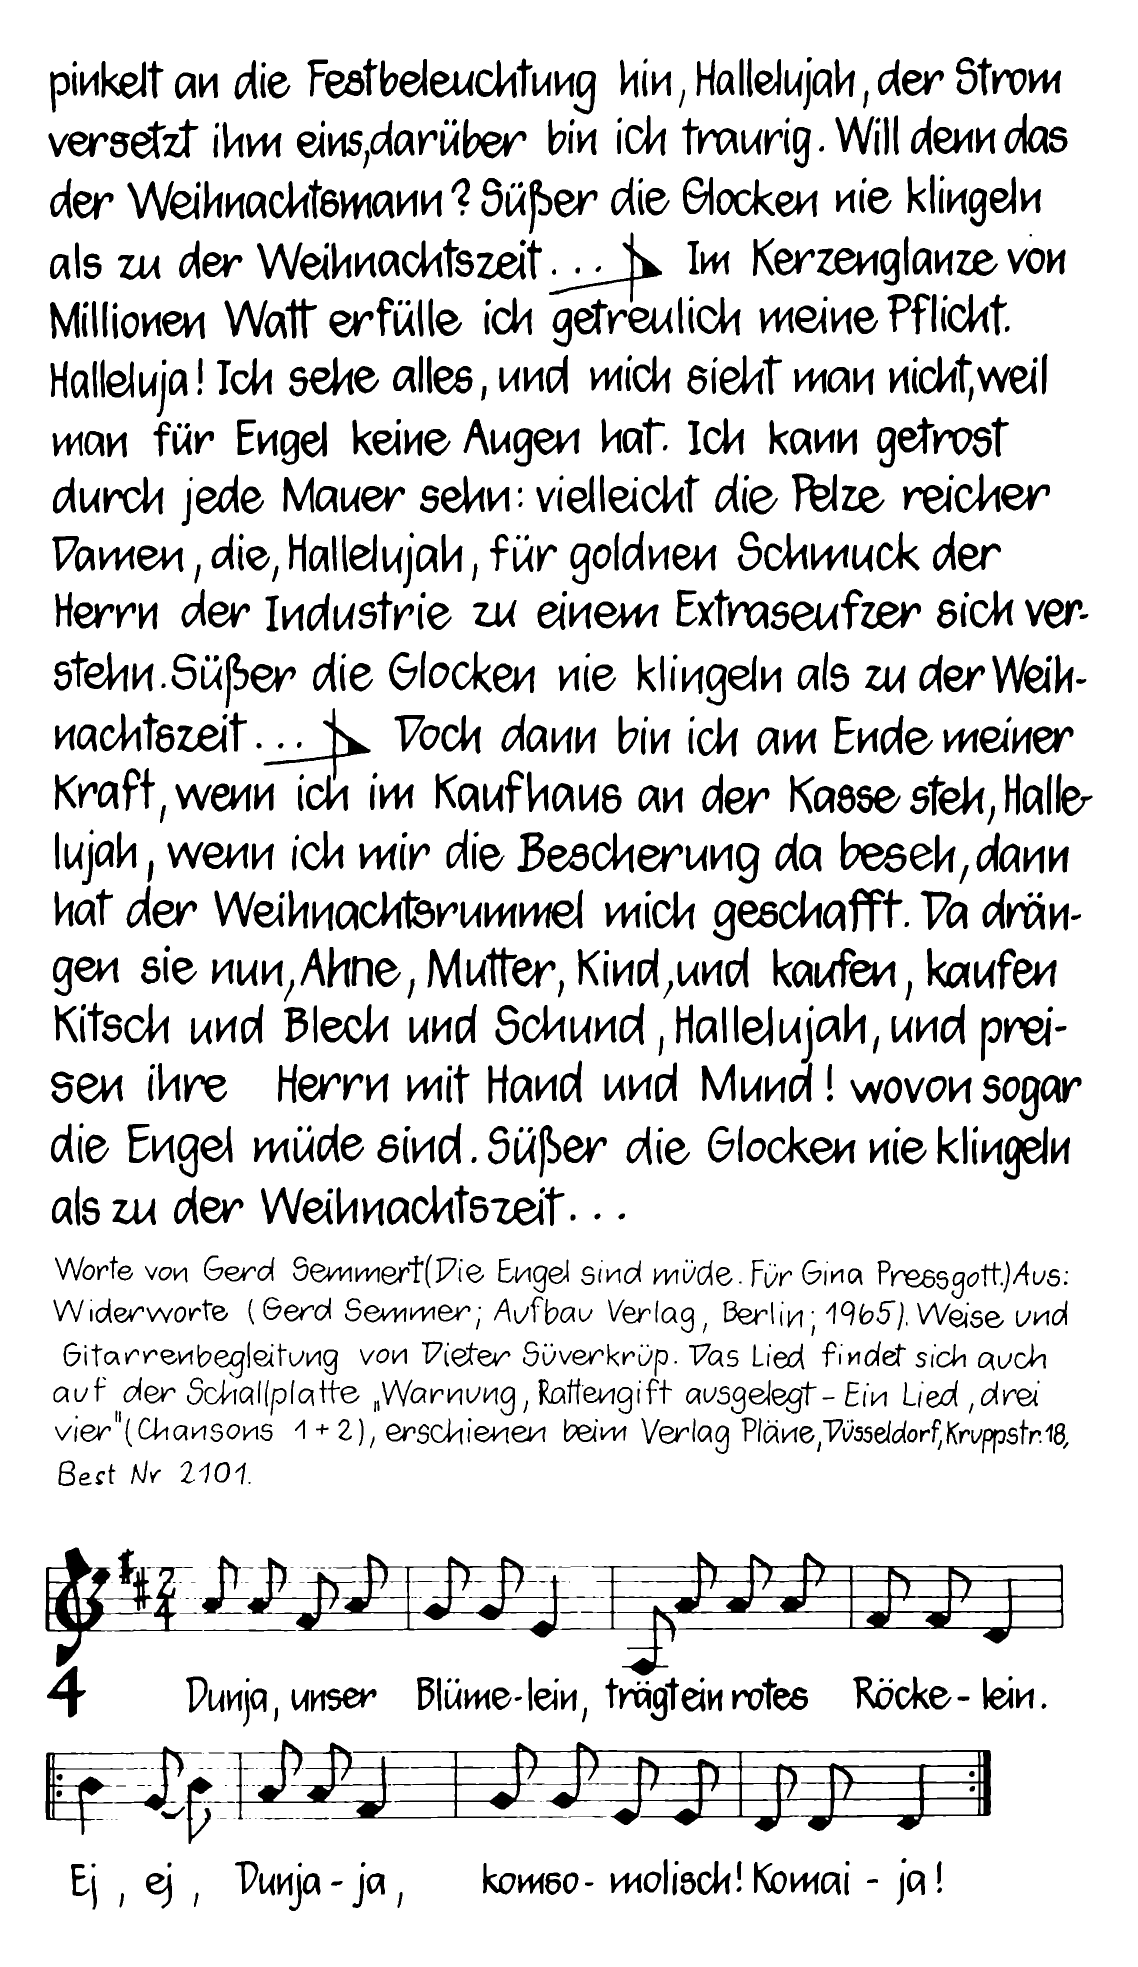 pinkelt an die Festbeleuchtung hin, Hallelujah, der Strom
versetzt ihm eins, darüber bin ich traurig. Will denn das
der Weihnachtsmann? Süßer die Glocken nie klingeln
als zu der Weihnachtszeit... Im Kerzenglanze von
Millionen Watt erfülle ich getreulich meine Pflicht.
Halleluja! Ich sehe alles, und mich sieht man nicht, weil
man für Engel keine Augen hat. Ich kann getrost
durch jede Mauer sehn: vielleicht die Pelze reicher
Damen, die, Hallelujah, für goldnen Schmuck der
Herrn der Industrie zu einem Extraseufzer sich ver-
stehn. Süßer die Glocken nie klingeln als zu der Weih-
nachtszeit... Doch dann bin ich am Ende meiner
Kraft, wenn ich im Kaufhaus an der Kasse steh, Halle-
lujah, wenn ich mir die Bescherung da beseh, dann
hat der Weihnachtsrummel mich geschafft. Da drän-
gen sie nun, Ahne, Mutter, Kind, und kaufen, kaufen
Kitsch und Blech und Schund, Hallelujah, und prei-
sen ihre Herrn mit Hand und Mund! wovon sogar
die Engel müde sind. Süßer die Glocken nie klingeln
als zu der Weihnachtszeit...
Worte von Gerd Semmert (Die Engel sind müde. Für Gina Pressgott.) Aus:
Widerworte (Gerd Semmer; Aufbau Verlag, Berlin; 1965). Weise und
Gitarrenbegleitung von Dieter Süverkrüp. Das Lied findet sich auch
auf der Schallplatte „Warnung, Rattengift ausgelegt - Ein Lied, drei
vier" (Chansons 1+2), erschienen beim Verlag Pläne, Düsseldorf, Kruppstr. 18,
Best Nr 2101.
2
4
4 Dunja, unser Blüme-lein, trägt ein rotes Röcke-lein.
Ej, ej, Dunja-ja, komso-molisch! Komai-ja!